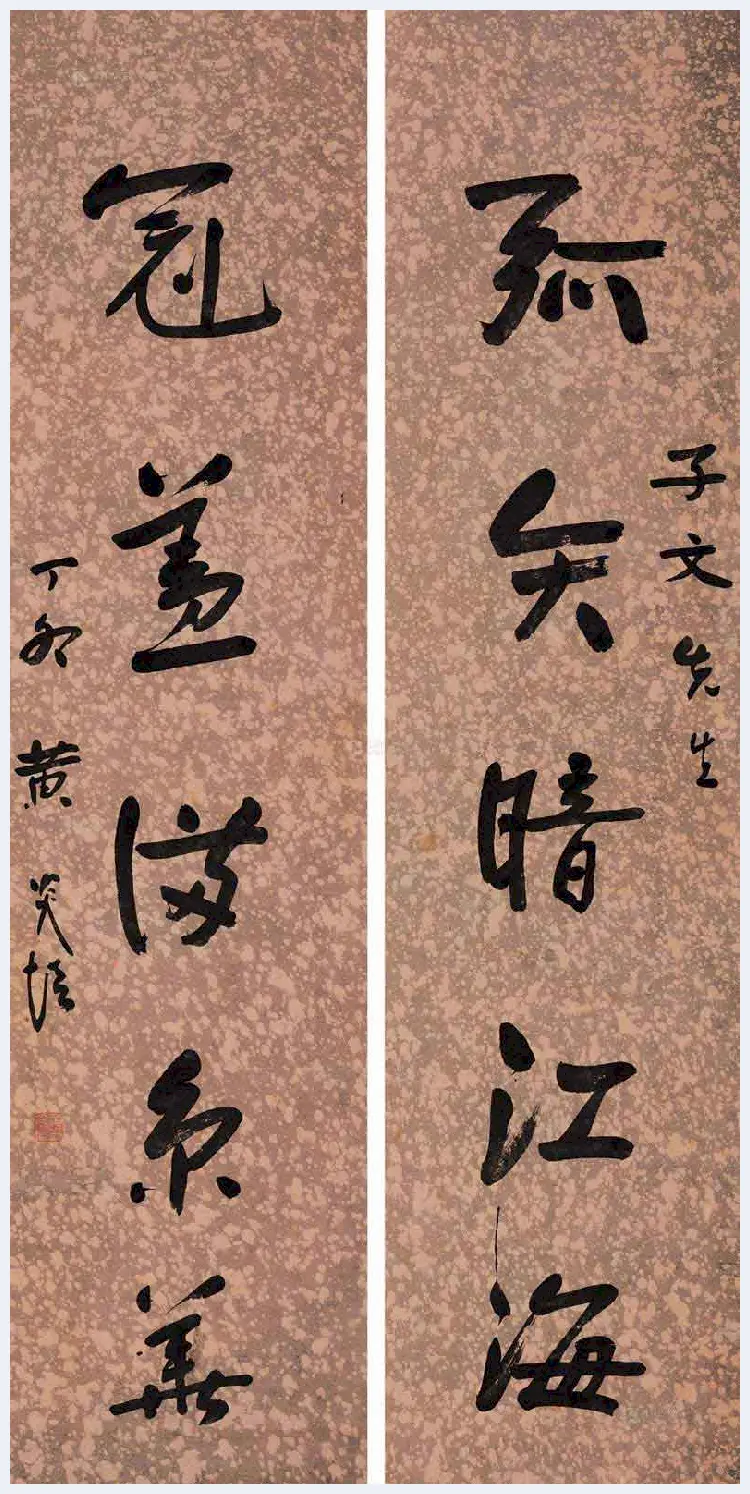 子文先生
弧矢暗江海
冠蓋滿京華
丁卯 黄炎培